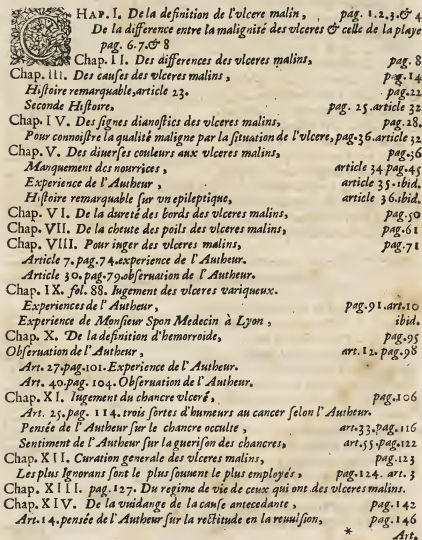 CHAP. I. De la definition de l'vlcere malin, pag. 1.2.3.& 4
De la difference entre la malignité des vlceres & celle de la playe
pag. 6.7.& 8
Chap. II. Des differences des vlceres malins, pag. 8
Chap. III. Des causes des vlceres malins, pag. 14
Histoire remarquable, article 23. pag. 22
Seconde Histoire. pag. 25. article 32
Chap. IV. Des signes dianostics des vlceres malins, pag. 28.
Pour connoistre la qualité maligne par la situation de l'vlcere, pag. 36. article 32
Chap. V. Des diuerses couleurs aux vlceres malins, pag. 36
Manquement des nourrices, article 34 pag. 45
Experience de l'Autheur, article 35. ibid.
Histoire remarquable sur vn epileptique, article 36. ibid.
Chap. VI. De la dureté des bords des vlceres malins, pag. 50
Chap. VII. De la cheute des poils des vlceres malins, pag. 61
Chap. VIII. Pour iuger des vlceres malins, pag. 71
Article 7. pag. 74. experience de l'Autheur.
Article 30. pag. 79. obseruation de l'Autheur.
Chap. IX. fol. 88. Iugement des vlceres variqueux.
Experiences de l'Autheur, pag. 91. art. 10
Experience de Monsieur Spon Medecin à Lyon, ibid.
Chap. X. De la definition d'hemorroide, pag. 95
Obseruation de l'Autheur, art. 12. pag. 98
Art. 27. pag. 101. Experience de l'Autheur.
Art. 40. pag. 104. Obseruation de l'Autheur.
Chap. XI. Iugement du chancre vlceré, pag. 106
Art. 25. pag. 114. trois sortes d'humeurs au cancer selon l'Autheur.
Pensée de l'Autheur sur le chancre occulte, art. 33. pag. 116
Sentiment de l'Autheur sur la guerison des chancres, art. 55. pag. 122
Chap. XII. Curation generale des vlceres malins, pag. 123
Les plus Ignorans sont le plus souuent le plus employés, pag. 124. art. 3
Chap. XIII. pag. 127. Du regime de vie de ceux qui ont des vlceres malins.
Chap. XIV. De la vuidange de la cause antecedante, pag. 142
Art. 14. pensée de l'Autheur sur la rectitude en la reuulsion, pag. 146
* Art.